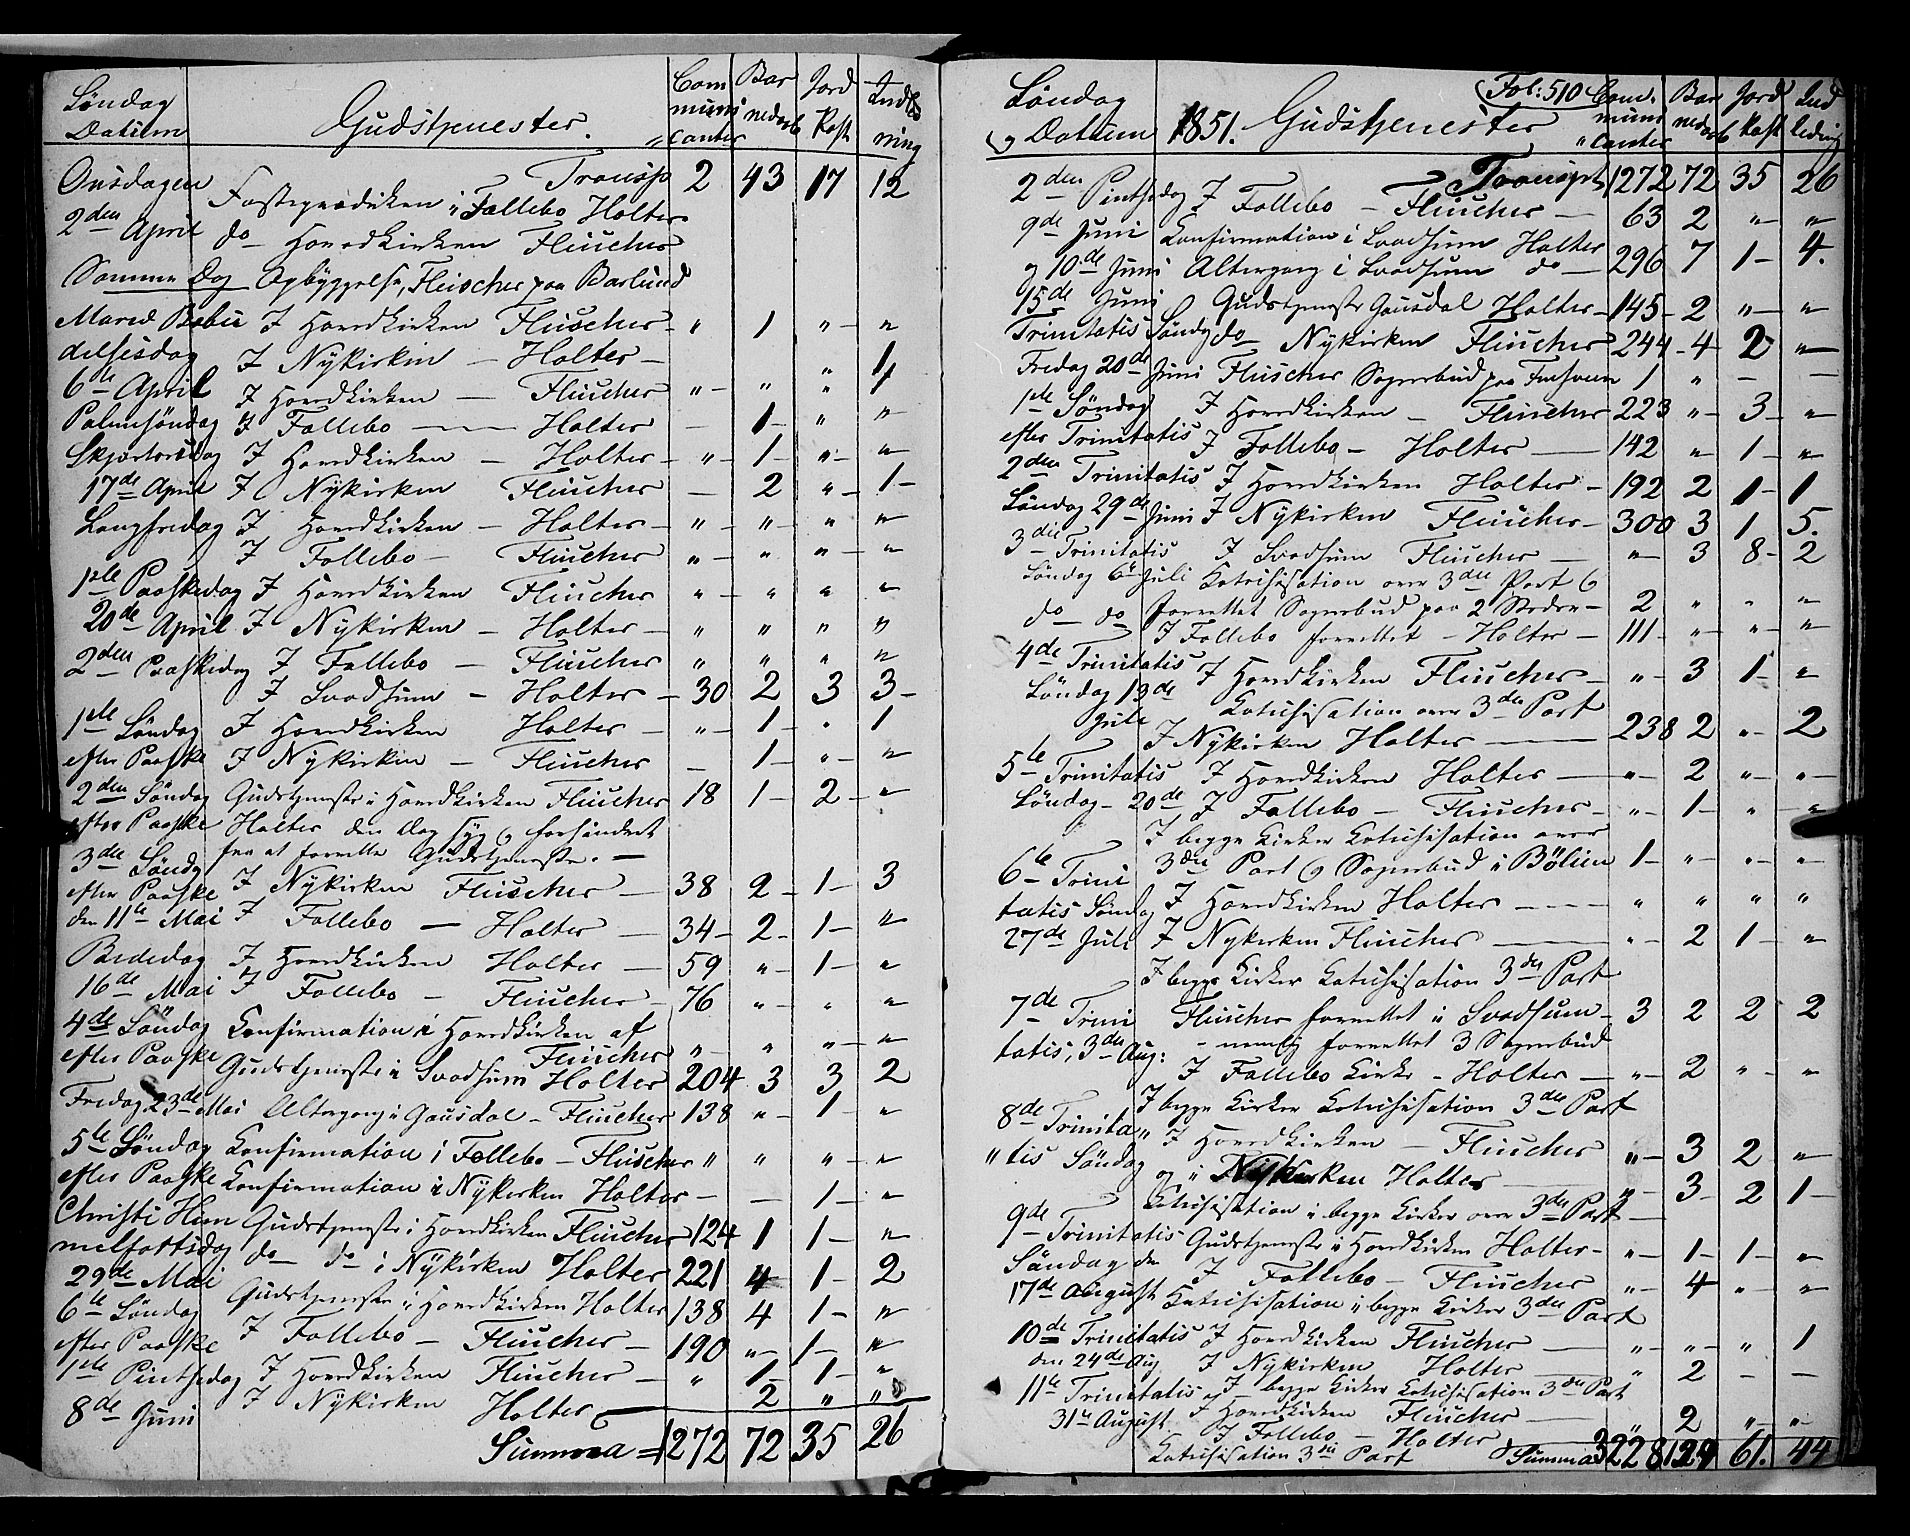 Söndag
Datum
Gudstjenester.
Com
muni
canter
Bar
nedaab
Jord
kast
Indle
ning
Transp 2 43 17 12
Onsdagen Fasteprædiken i Follebo Holter
2den April do Hovedkirken Fleischer
Samme Dag Opbyggelse, Fleischer paa Barlund
Mariæ Bebu I Hovedkirken Fleischer - " 1 " "
delsesdag I Nykirken - Holter - " 1
6de April I Hovedkirken - Fleischer " " " 1
Palmesöndag I Follebo - Holter - 1 " "
Skjærtorsdag I Hovedkirken - Holter - " 1 " "
17de April I Nykirken Fleischer - 2 " 1
Langfredag I Hovedkirken - Holter - " " " "
I Follebo - Fleischer " " " "
1ste Paaskedag I Hovedkirken Fleischer " " " "
20de April I Nykirken - Holter - " " " "
2den Paaskedag I Follebo - Fleischer " " " "
I Svadsum - Holter - 30 2 3 3
1ste Söndag I Hovedkirken Holter - " 1 " 1
efter Paaske I Nykirken - Fleischer - 1 " "
2den Söndag Gudstjeneste i Hovedkirken Fleischer 18 1 2 "
efter Paaske Holter den Dag syg og forhindret
fra at forrette Gudstjeneste. -
3die Söndg
efter Paaske I Nykirken Fleischer - 38 2 1 3
den 11te Mai I Follebo - Holter - 34 2 1 "
Bededag I Hovedkirken Holter - 59 " 1 "
16de Mai I Follebo - Fleischer - 76 " " "
4de Söndag Confirmation i Hovedkirken af
efter Paaske Fleischer " " " "
Gudstjeneste i Svadsum Holter 204 3 3 2
Fredag 23de Mai Altergang i Gausdal - Fleischer 138 " 1 "
5te Söndag Confirmation i Follebo - Fleischer " " " "
efter Paaske Confirmation i Nykirken Holter - - 1 "
Christi Him Gudstjeneste i Hovedkirken Fleischer 124 1 1 "
melfartsdag do do i Nykirken Holter 221 4 1 2
29de Mai
6te Söndag Gudstjeneste i Hovedkirken Holter 138 4 1 "
efter Paaske I Follebo - Fleischer - 190 " 1 "
1ste Pintsedag I Hovedkirken Fleischer - " 1 1 "
8de Juni I Nykirken Holter 2 " "
Summa = 1272 72 35 26
Söndag
og Datum
1851. Gudstjenester
Fol: 510
Com.
muni
canter
Bar
nedaab
Jord
kast
Ind
ledning
Transport 1272 72 35 26
2den Pintsedag I Follebo - Fleischer - 63 2 " "
9de Juni Confirmation i Svadsum Holter 296 7 1 4.
og 10de Juni Altergang i Svadsum do
15de Juni Gudstjeneste Gausdal Holter - 145 2 " "
Trinitatis Söndg do Nykirken Fleischer 244 4 2 "
Fredag 20de Juni Fleischer Sognebud paa 1 " - -
1ste Söndag I Hovedkirken - Fleischer 223 " 3 "
efter Trinitatis I Follebo - Holter - 142 " 1 "
2den Trinitatis I Hovedkirken Holter - 192 2 1 1
Söndag 29de Juni I Nykirken Fleischer - 300 3 1 5.
3die Trinitatis I Svadsum Fleischer - " 3 8 2
Söndag 6te Juli Catechisation over 3die Part og
do do forrettet Sognebud paa 2 Steder - 2 " " "
I Follebo forrettet - Holter - 111 " " "
4de Trinitatis I Hovedkirken Fleischer - " 3 1 "
Söndag 13de Juli Catechisation over 3die Part
I Nykirken Holter - 238 2 " 2
5te Trinitatis I Hovedkirken Holter - " 2 " "
Söndag - 20de I Follebo - Fleischer - " 1 " "
I begge Kirker Catechisation over
6te Trini 3die Part og Sognebud i Bölien 1 " " "
tatis Söndag I Hovedkirken Holter - " " " "
27de Juli I Nykirken Fleischer - " 2 1 "
I begge Kirker Catechisation 3die Part
7de Trini Fleischer forrettet i Svadsum - 3 2 2 2
tatis, 3die Aug: - nemlig forrettet 3 Sognebud
I Follebo Kirke - Holter - " 2 " "
I begge Kirker Catechisation 3die Part
8de Trinita" I Hovedkirken - Fleischer " 3 2 "
"tis Söndag og i Nykirken Holter " 3 2 1
Catechisation i begge Kirker over 3die Part -
9de Trinitatis Gudstjeneste i Hovedkirken Holter - " 1 1 "
Söndag den I Follebo - Fleischer " 4 " "
17de August Catechisation i begge Kirker 3die Part
10de Trinitatis I Hovedkirken Fleischer - " " " 1
den 24de Aug I Nykirken Holter - " 2 - -
11te Trinitatis I begge Kirker Catechisation 3die Part
31te August I Hovedkirken Fleischer - " 2 " "
I Follebo - Holter
Catechisation 3die Part Summa 3228 129 61. 44